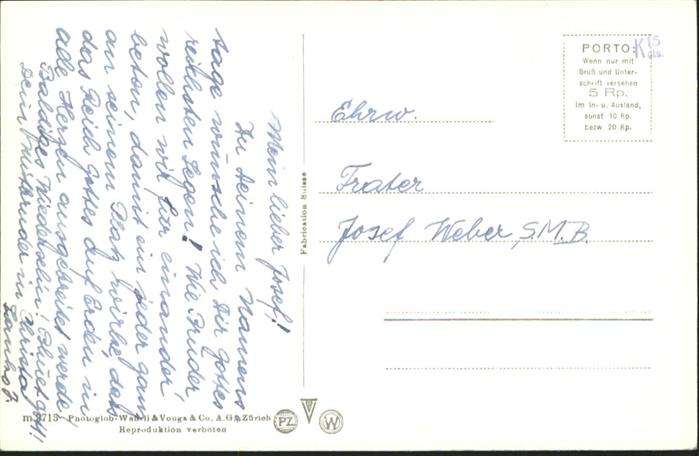 Mein lieber Josef!
Zu Deinem Namens
tage wünsche ich Dir Gottes
reichsten Segen! Wie Brüder
wollen wir für einander
beten, damit ein jeder ganz
an seinem Platz wirke, dass
das Reich Gottes auf Erden in
alle Herzen ausgebreitet werde
Baldiges Wiedersehn! Behüet Gott!!
Dein Mitbruder in Christo
PORTO:
Wenn nur mit
Gruß und Unter-
schrift versehen
5 Rp.
im In- u. Ausland,
sonst 10 Rp.
bezw. 20 Rp.
K 15
Ehrw.
Frater
Josef Weber, S.M.B.
Fabrication Suisse
m 3713 Photoglob-Wehrli & Vouga & Co., A.G., Zürich
Reproduktion verboten
PZ
V
W